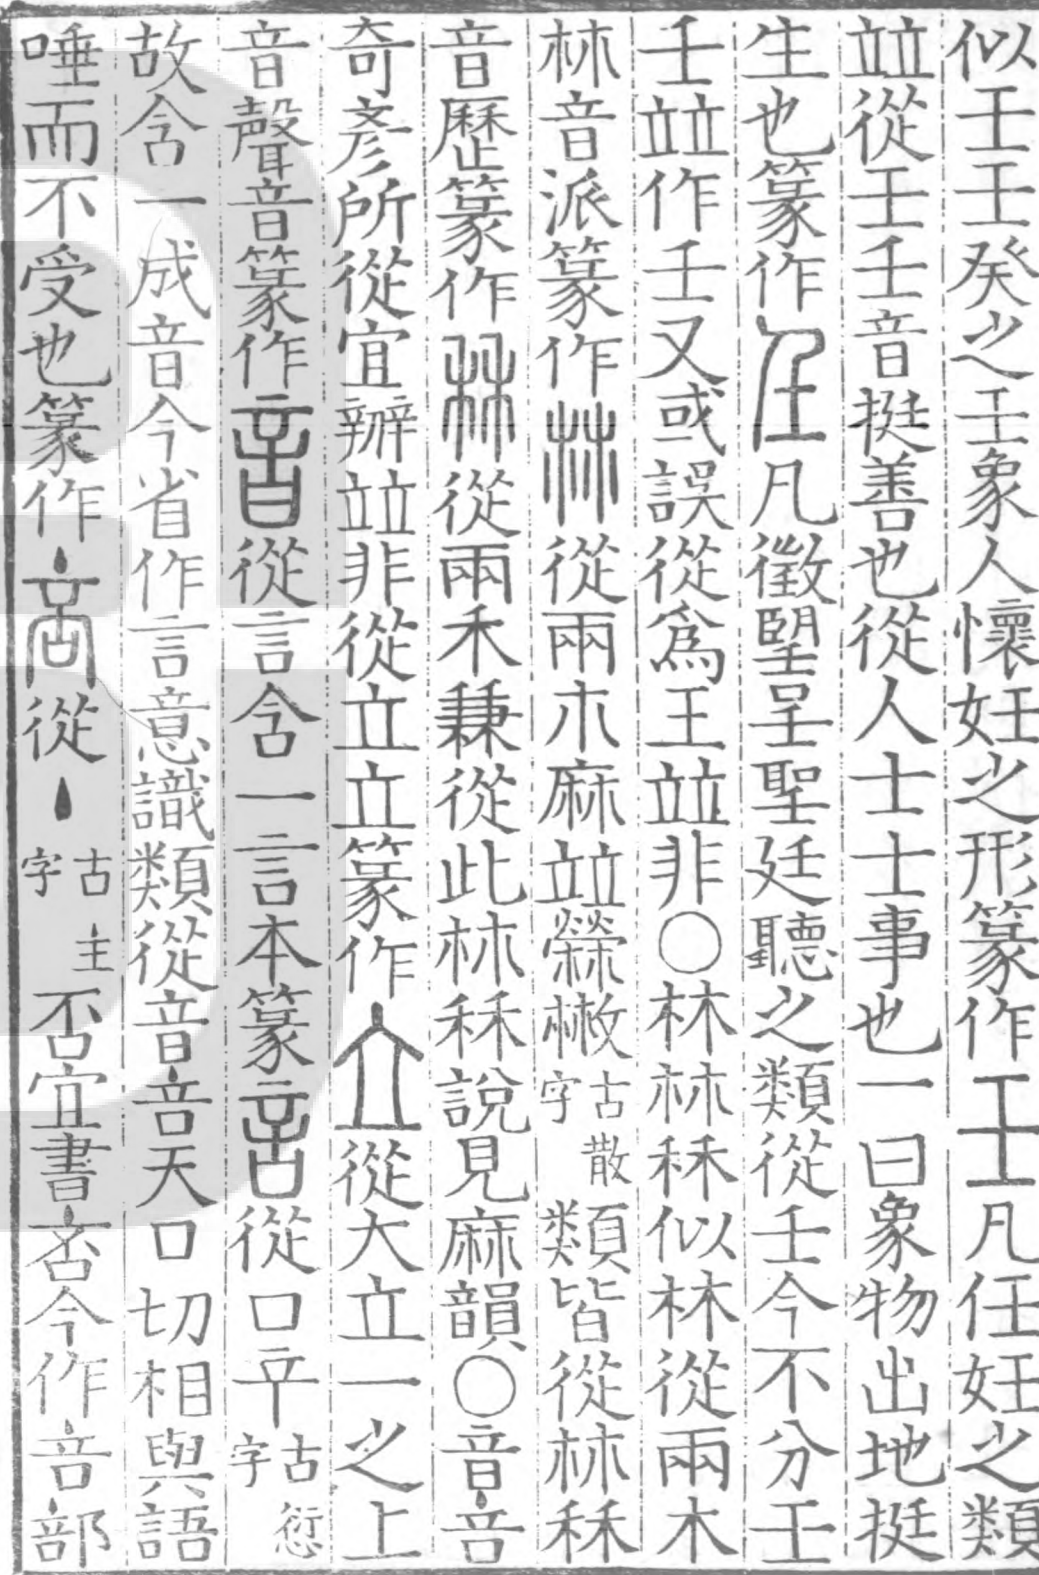 似壬壬癸之壬象人懷妊之形篆作壬凡任妊之類
竝從壬𡈼音挺善也從人士士事也一曰象物出地挺
生也篆作𡈼凡徵朢呈聖廷聽之類從𡈼今不分壬
𡈼竝作壬又或誤從爲王竝非○林𣏟秝似林從兩木
𣏟音派篆作𣏟從兩朩麻竝㪔古散字類皆從𣏟秝
音歷篆作秝從兩禾兼從此𣏟秝說見麻韻○音咅
奇彥所從宜辦竝非從立立篆作立從大立一之上
音聲音篆作音從言含一言本篆言從口䇂古愆字
故含一成音今省作言意識類從音咅天口切相與語
唾而不受也篆作咅從丶古主字否宜書咅今作咅部